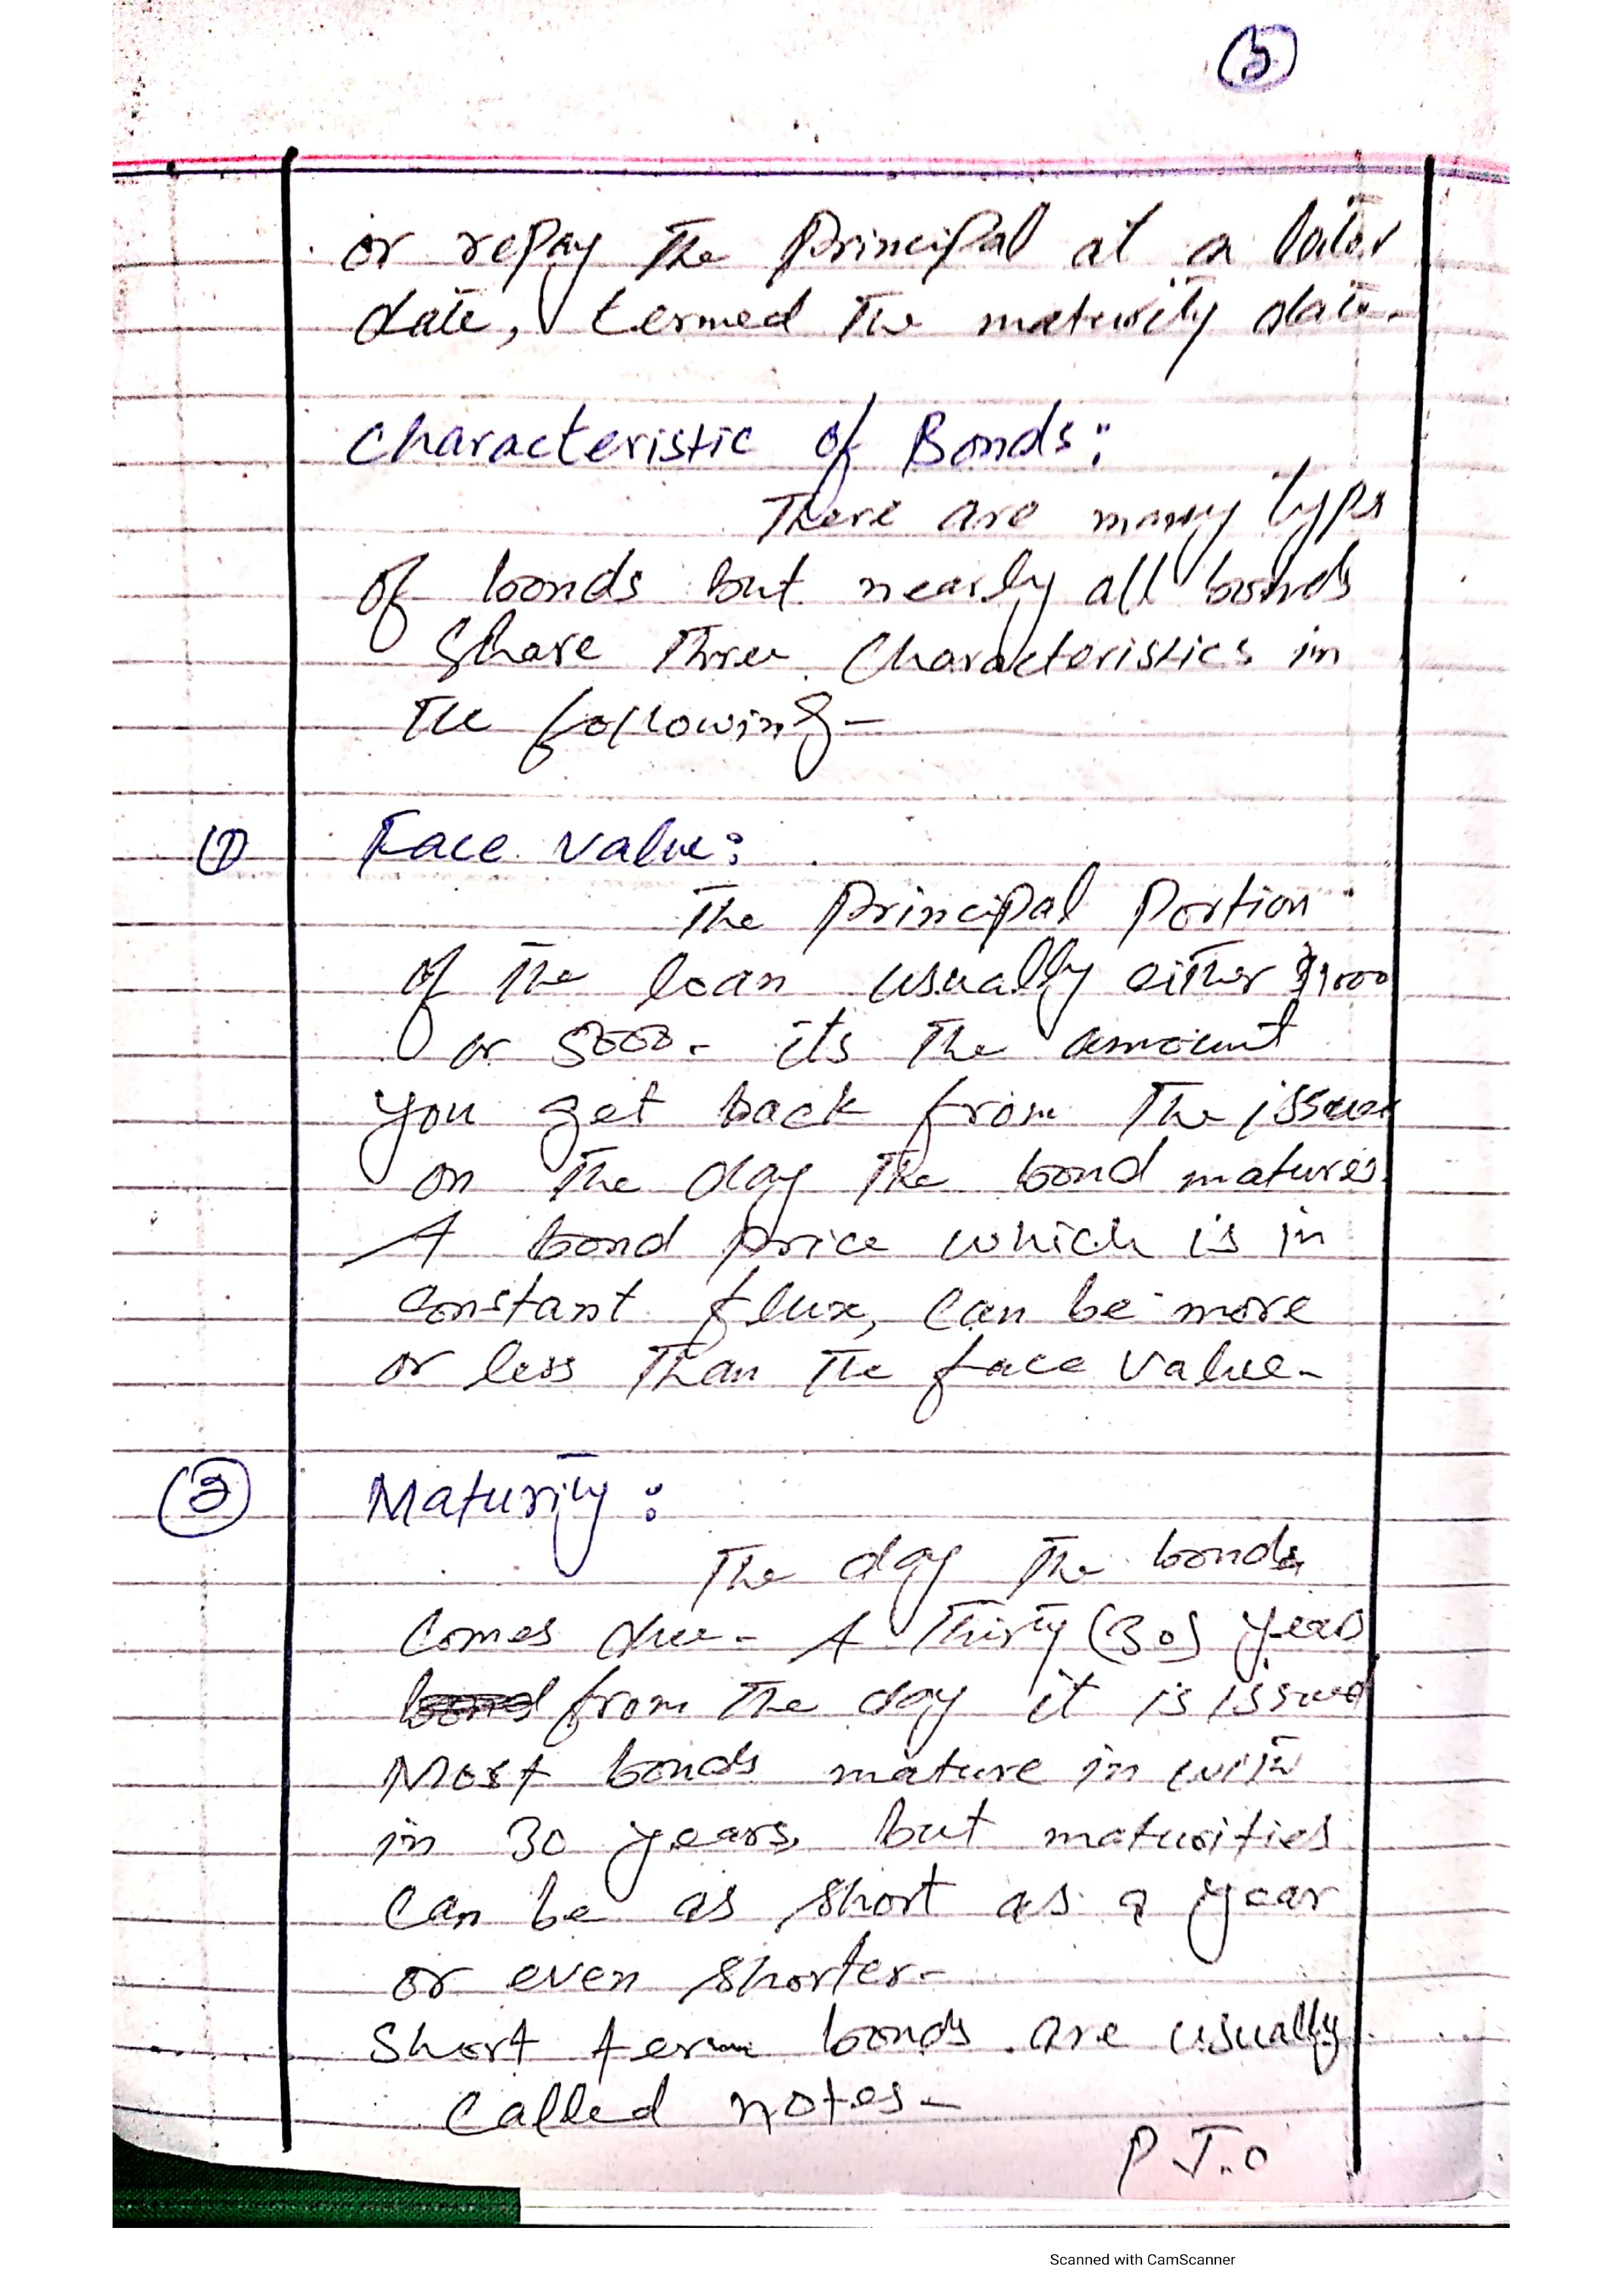 5
or repay the principal at a later
date, termed the maturity date.
Characteristic of Bonds:
There are many typs
of bonds but nearly all bonds
Share three Characteristics in
the following -
1 Face value:
The principal Portion
of the loan usually either $1000
or 5000. its the amount
you get back from the issuer
on the day the bond matures.
A bond price which is in
constant flux, can be more
or less than the face value.
2 Maturity:
The day the bonds
comes due. A Thirty (30) years
from the day it is issued
Most bonds mature in with
in 30 years, but maturities
can be as short as a year
or even shorter.
Short term bonds are usually
called notes.
P.T.O
Scanned with CamScanner